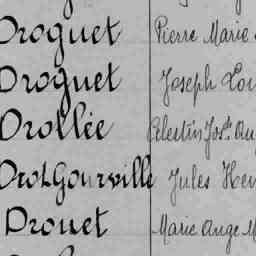 Droguet Pierre Marie
Droguet Joseph
Drollée Célestin Josh
Drot Gourville Jules
Drouet Marie Ange